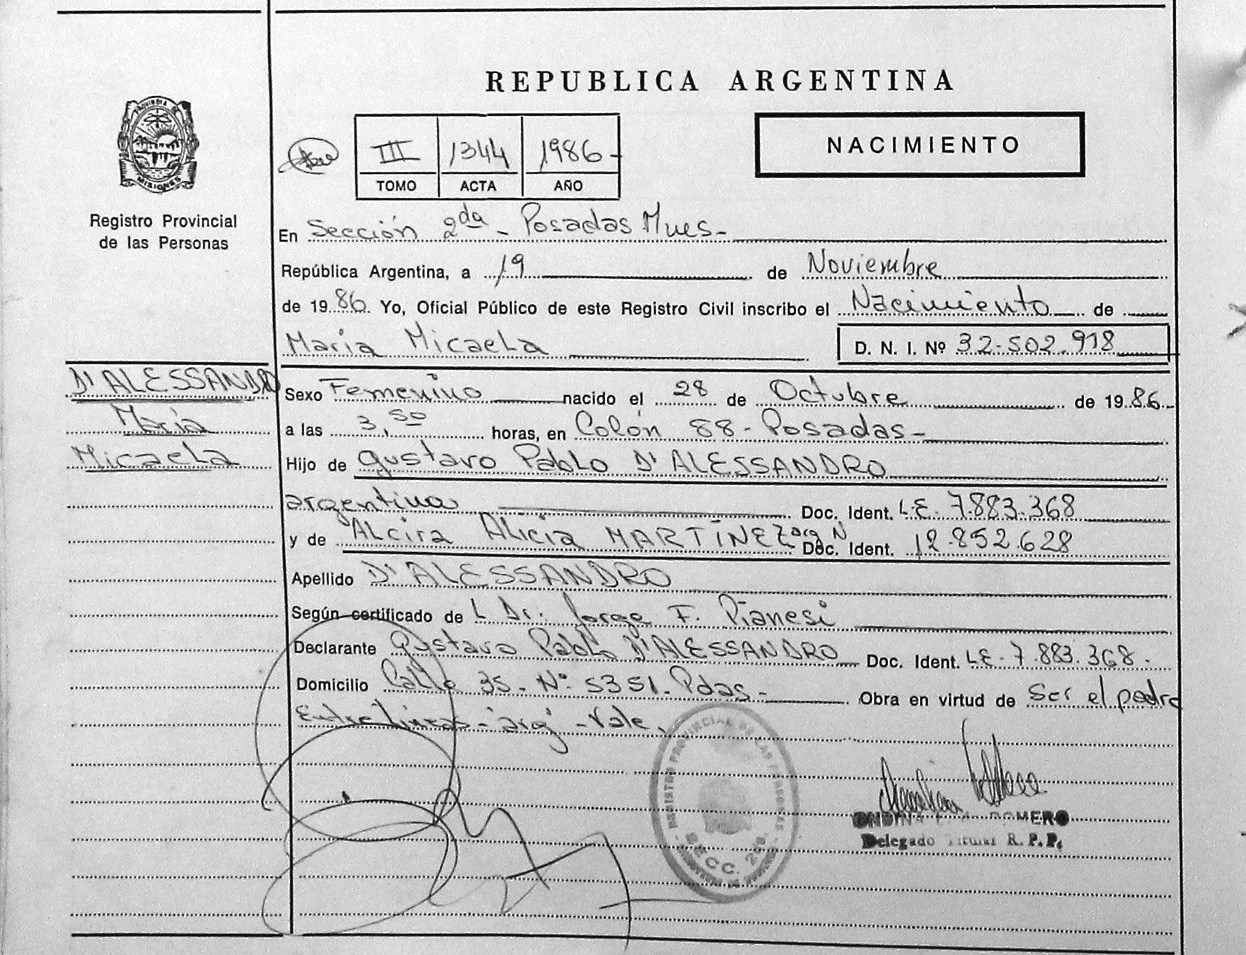 REPUBLICA ARGENTINA
PROVINCIA DE
MISIONES
Registro Provincial
de las Personas
III 1344 1986-
TOMO ACTA AÑO
NACIMIENTO
En Sección 2da - Posadas Mnes-
República Argentina, a 19 de Noviembre
de 1986. Yo, Oficial Público de este Registro Civil inscribo el Nacimiento de
María Micaela D. N. I. Nº 32-502.918
D'ALESSANDRO
María
Micaela
Sexo Femenino nacido el 28 de Octubre de 1986.
a las 3,50 horas, en Colón 88-Posadas-
Hijo de Gustavo Pablo D'ALESSANDRO
argentino Doc. Ident. L.E. 7.883.368
y de Alcira Alicia MARTÍNEZ arg N Doc. Ident. 12.852.628
Apellido D'ALESSANDRO
Según certificado de L Dr. Jorge F. Pianesi
Declarante Gustavo Pablo D'ALESSANDRO Doc. Ident. L.E. 7.883.368-
Domicilio Calle 35- Nº 5351. Pdas- Obra en virtud de Ser el padre
Entre líneas-"arg"-Vale,
REGISTRO PROVINCIAL DE LAS PERSONAS
SECC. 2da.
ONDINA ROMERO
Delegado Titular R. P. P.